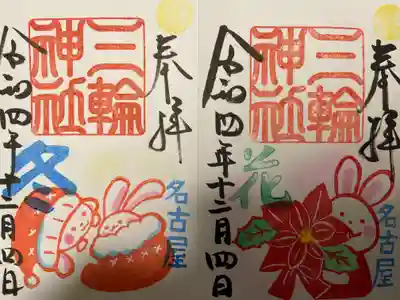 奉拝
三輪
神社
冬
名古屋
令和四年十二月四日
奉拝
三輪
神社
花
名古屋
令和四年十二月四日